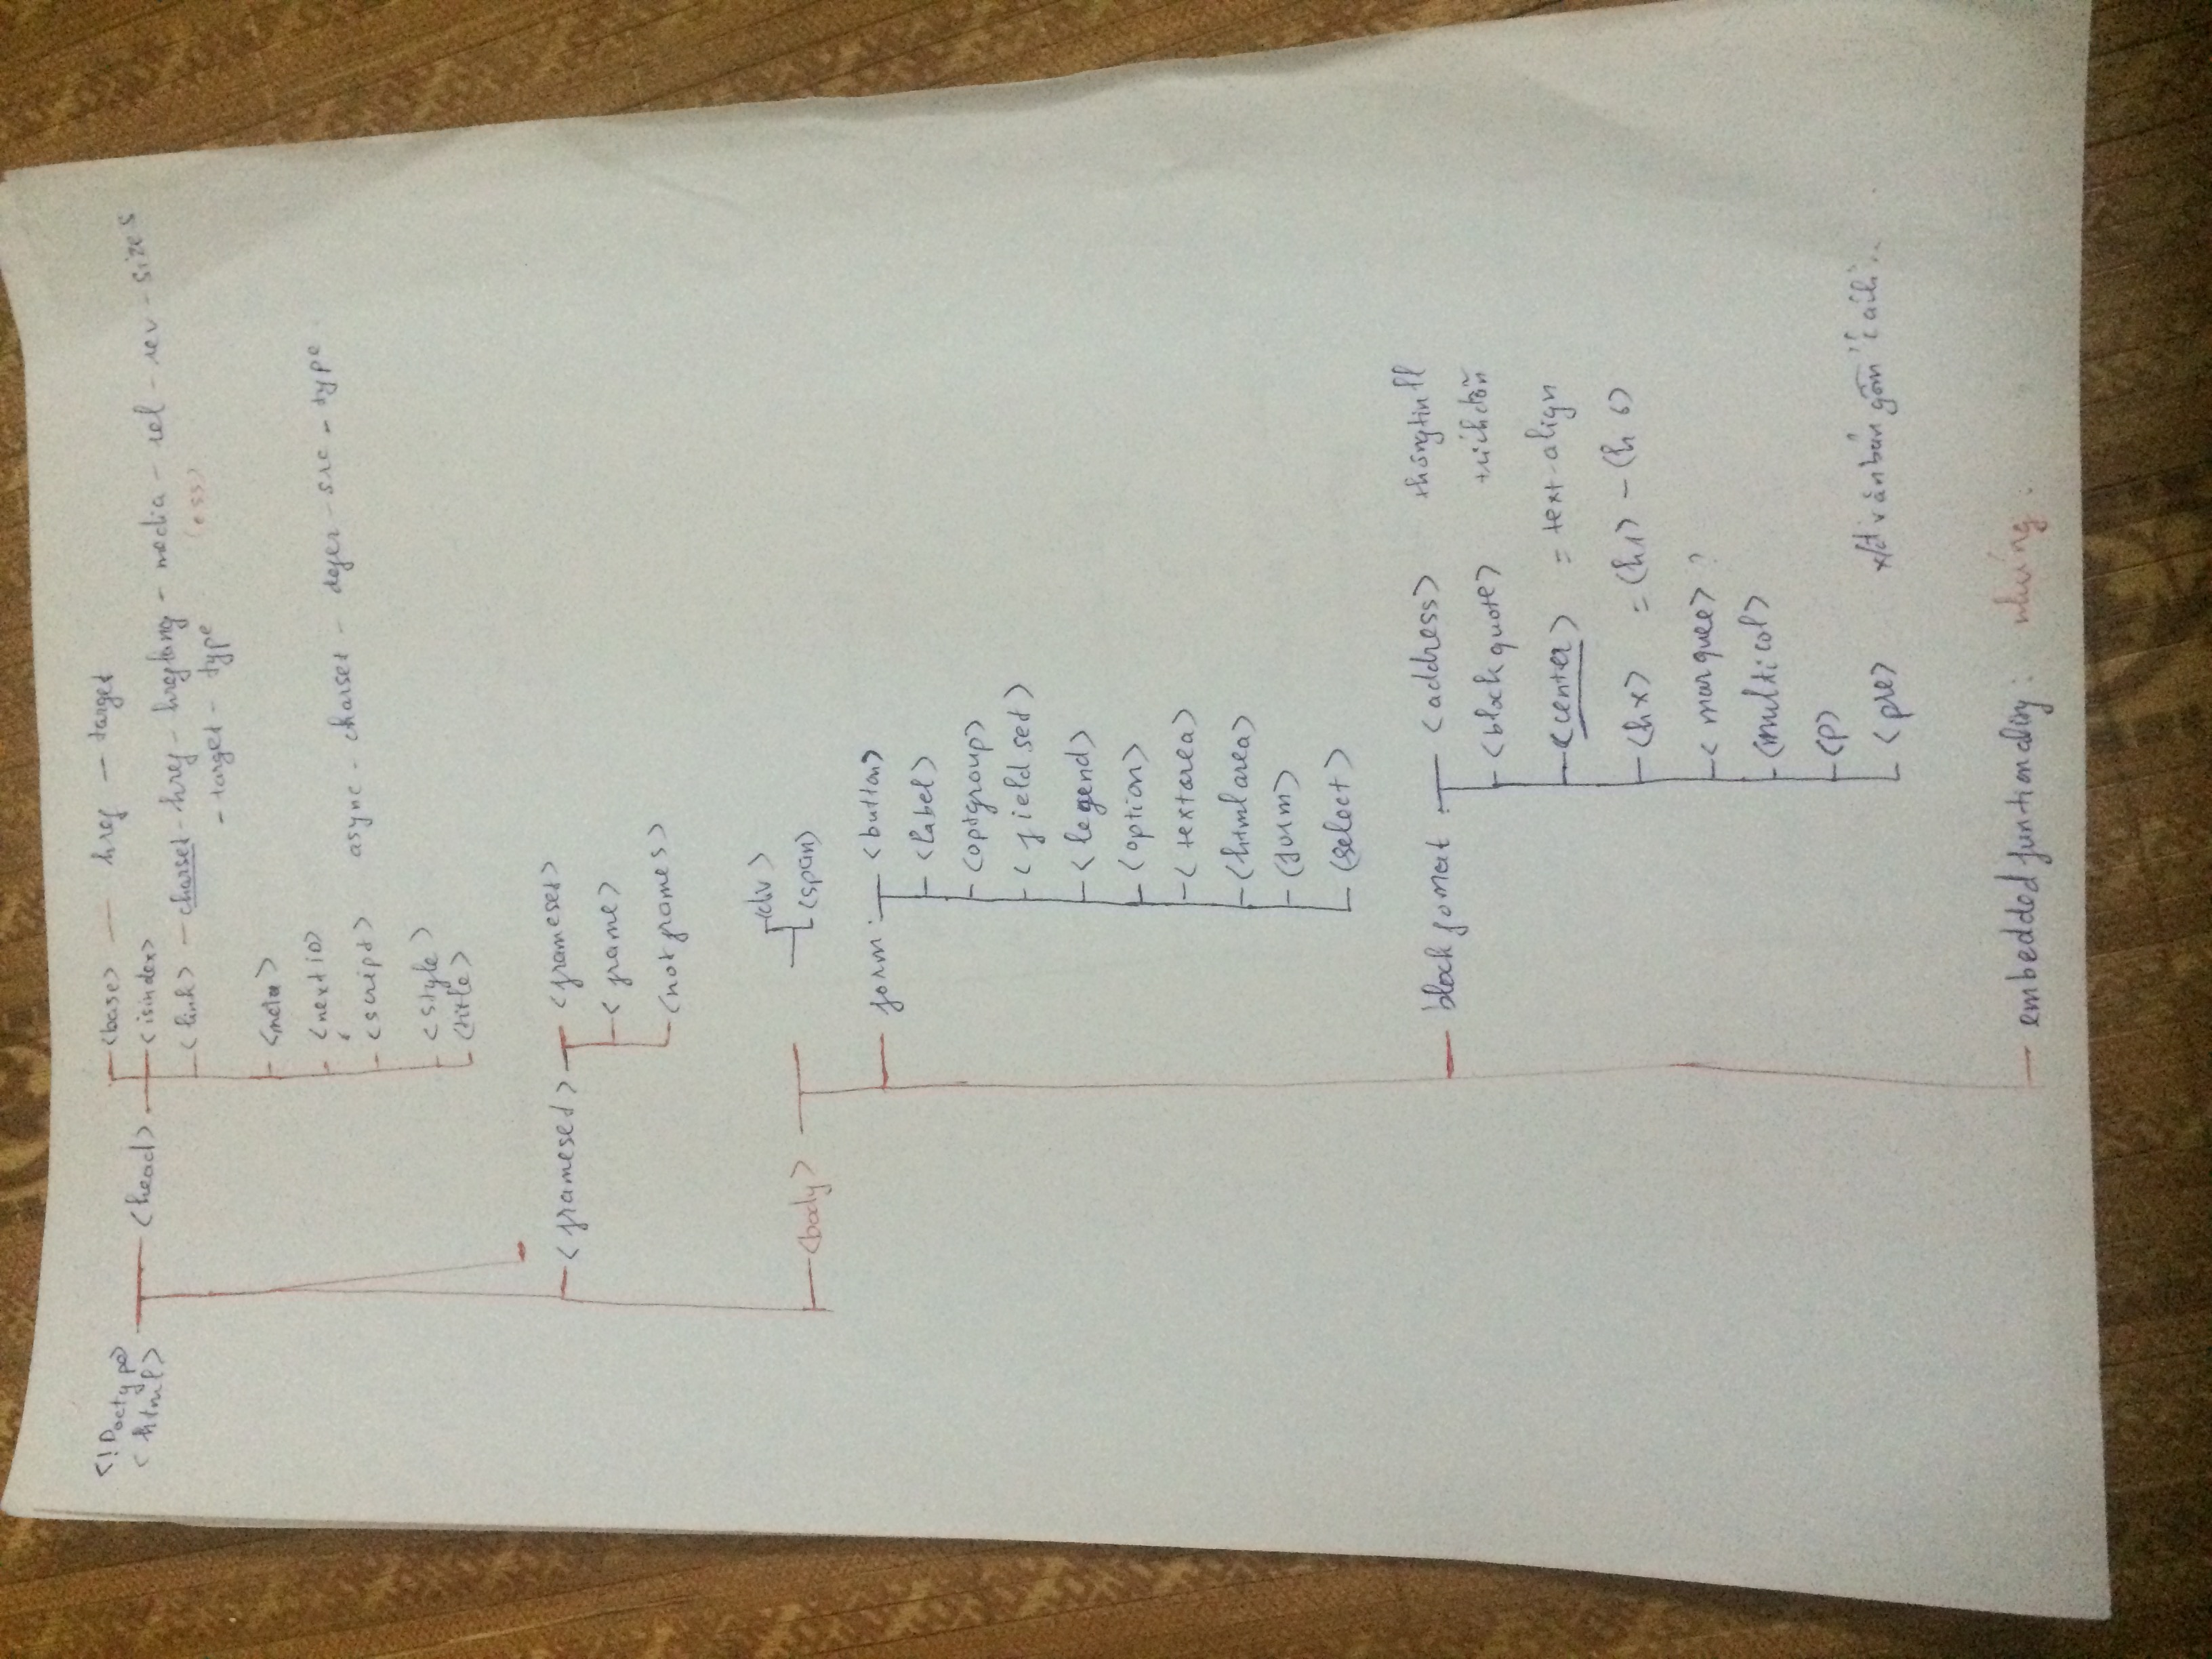 <!Doctype>
<html>
<head>
<base> — href — target
<isindex>
<link> - charset - href - hreflang - media - rel - rev - sizes
- target - type
<meta>
<nextiD>
<script> async - charset - defer - src - type
<style>
<title>
<frameset>
<frameset>
<frame>
<notframes>
<div>
<body>
<span>
form:
<button>
<label>
<optgroup>
<fieldset>
<legend>
<option>
<textarea>
<htmlarea>
<form>
<select>
block fomat
<address> thôngtin ll
<blockquote> trích dẫn
<center> = text-align
<hx> = <h1> - <h6>
<marquee> ?
<multicol>
<p>
<pre> văn bản gồm
embedded funtionality: nhúng.